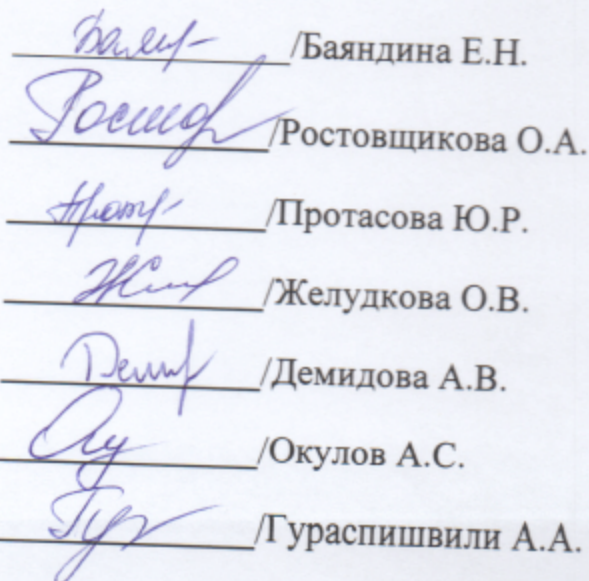 /Баяндина Е.Н.
/Ростовщикова О.А.
/Протасова Ю.Р.
/Желудкова О.В.
/Демидова А.В.
/Окулов А.С.
/Гураспишвили А.А.